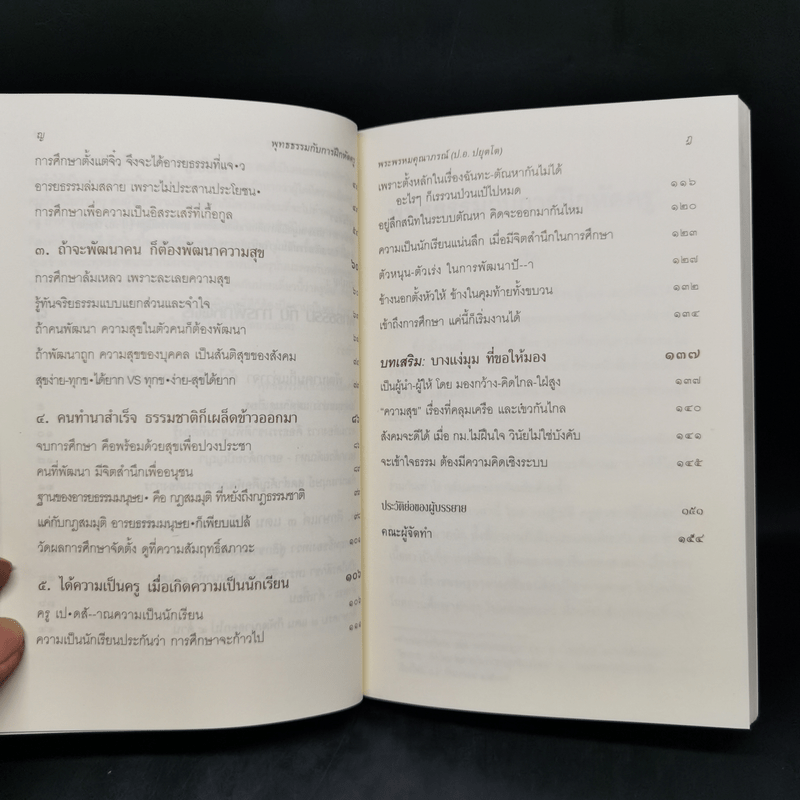 ญ
พุทธธรรมกับการฝึกหัดครู
การศึกษาตั้งแต่จิ๋ว จึงจะได้อารยธรรมที่แจ•ว
อารยธรรมล่มสลาย เพราะไม่ประสานประโยชน•
การศึกษาเพื่อความเป็นอิสระเสรีที่เกื้อกูล
๓. ถ้าจะพัฒนาคน ก็ต้องพัฒนาความสุข
การศึกษาล้มเหลว เพราะละเลยความสุข
รู้ทันจริยธรรมแบบแยกส่วนและจำใจ
ถ้าคนพัฒนา ความสุขในตัวคนก็ต้องพัฒนา
ถ้าพัฒนาถูก ความสุขของบุคคล เป็นสันติสุขของสังคม
สุขง่าย-ทุกข•ได้ยาก VS ทุกข•ง่าย-สุขได้ยาก
๔. คนทำนาสำเร็จ ธรรมชาติก็เผล็ดข้าวออกมา
จบการศึกษา คือพร้อมด้วยสุขเพื่อปวงประชา
คนที่พัฒนา มีจิตสำนึกเพื่ออนุชน
ฐานของอารยธรรมมนุษย• คือ กฎสมมุติ ที่หยั่งถึงกฎธรรมชาติ
แค่กับกฎสมมุติ อารยธรรมมนุษย•ก็เพียบแปล้
วัดผลการศึกษาจัดตั้ง ดูที่ความสัมฤทธิ์สภาวะ ๑๐๑
๕. ได้ความเป็นครู เมื่อเกิดความเป็นนักเรียน ๑๐๖
ครู เป•ดส้--าณความเป็นนักเรียน ๑๐๖
ความเป็นนักเรียนประกันว่า การศึกษาจะก้าวไป ๑๑๑
พระพรหมคุณาภรณ์ (ป.อ. ปยุตฺโต)
เพราะตั้งหลักในเรื่องฉันทะ-ตัณหากันไม่ได้
อะไรๆ ก็เรรวนป่วนเป๋ไปหมด ๑๑๖
อยู่ลึกสนิทในระบบตัณหา คิดจะออกมากันไหม ๑๒๐
ความเป็นนักเรียนแน่นลึก เมื่อมีจิตสำนึกในการศึกษา ๑๒๓
ตัวหนุน-ตัวเร่ง ในการพัฒนาปั--า ๑๒๗
ข้างนอกตั้งหัวให้ ข้างในคุมท้ายทั้งขบวน ๑๓๒
เข้าถึงการศึกษา แค่นี้ก็เริ่มงานได้ ๑๓๔
บทเสริม: บางแง่มุม ที่ขอให้มอง ๑๓๗
เป็นผู้นำ-ผู้ให้ โดย มองกว้าง-คิดไกล-ใฝ่สูง ๑๓๗
“ความสุข” เรื่องที่คลุมเครือ และเขวกันไกล ๑๔๐
สังคมจะดีได้ เมื่อ กม.ไม่ฝืนใจ วินัยไม่ใช่บังคับ ๑๔๑
จะเข้าใจธรรม ต้องมีความคิดเชิงระบบ ๑๔๕
ประวัติย่อของผู้บรรยาย ๑๕๑
คณะผู้จัดทำ ๑๕๔